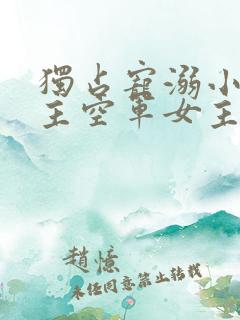 獨占寵溺小
王空軍女主
趙憶
未任同意禁止转载